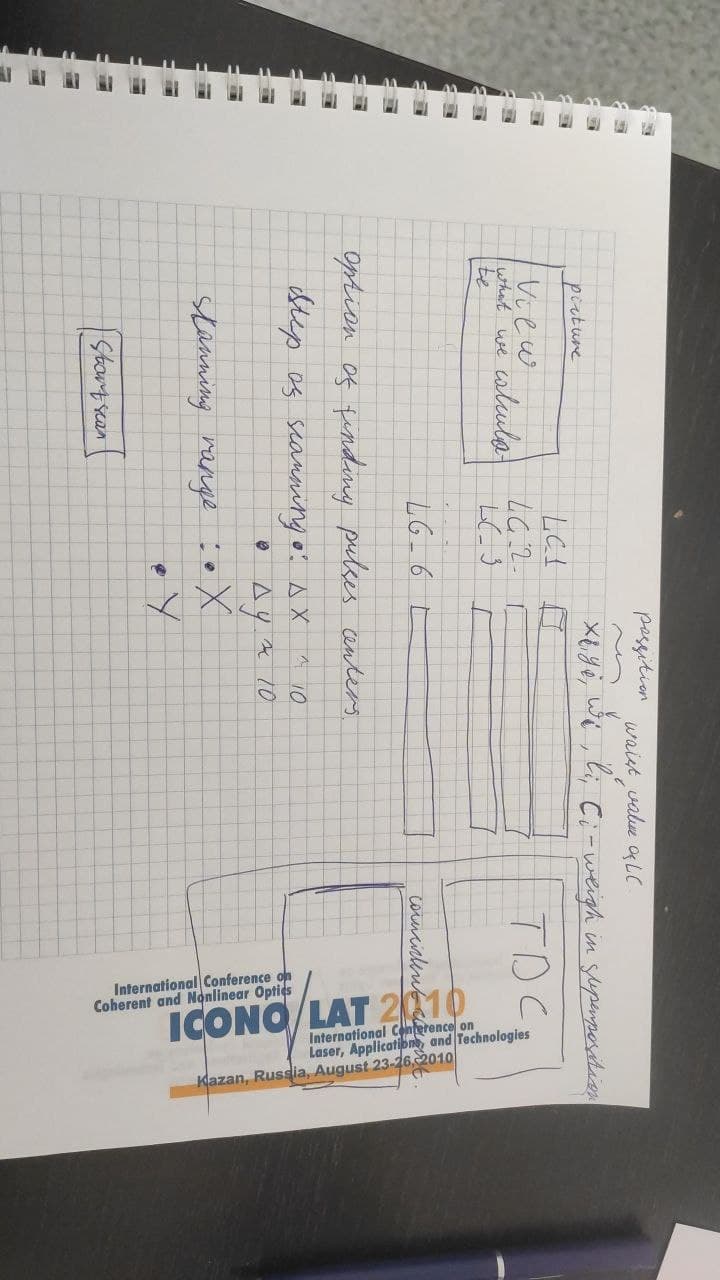 possition
waist value of LC
xi, yi, wi, li, Ci - weigh in superposition
picture
View
what we calcula-
te
LC_1
LC_2
LC_3
.....
LG_6
TDC
coincident count.
option of finding pulses centers.
Step of scanning : ΔX ~ 10
Δy ≈ 10
scanning range : X
Y
Start scan
International Conference on
Coherent and Nonlinear Optics
ICONO/LAT 2010
International Conference on
Laser, Applications, and Technologies
Kazan, Russia, August 23-26, 2010